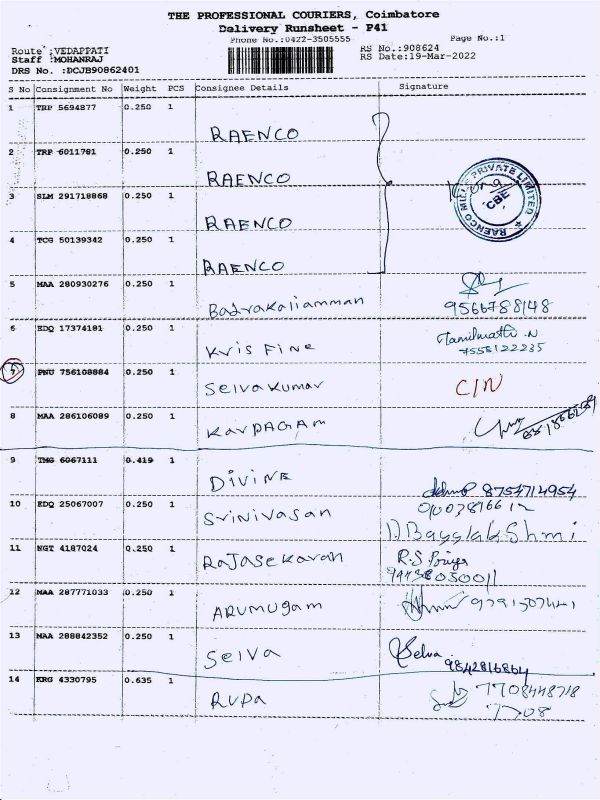 THE PROFESSIONAL COURIERS, Coimbatore
Delivery Runsheet - P41
Phone No.:0422-3505555 Page No.:1
Route :VEDAPPATI RS No.:908624
Staff :MOHANRAJ RS Date:19-Mar-2022
DRS No. :DCJB90862401
S No Consignment No Weight PCS Consignee Details Signature
1 TRP 5694877 0.250 1
RAENCO
2 TRP 6011781 0.250 1
RAENCO
RAENCO MILLS PRIVATE LIMITED CBE
3 SLM 291718868 0.250 1
RAENCO
4 TCG 50139342 0.250 1
RAENCO
5 MAA 280930276 0.250 1
Badrakaliamman 9566788148
6 EDQ 17374181 0.250 1
Kris Fine Tamilmathi .N
7558122235
7 PNU 756108884 0.250 1
Selvakumar C/N
8 MAA 286106089 0.250 1
KarPAGAM
9 TMG 6067111 0.419 1
DIVINE 8754714954
10 EDQ 25067007 0.250 1
Srinivasan
11 NGT 4187024 0.250 1
RaJaseKaran R.S Priya
12 MAA 287771033 0.250 1
ARUMUgam
13 MAA 288842352 0.250 1
Selva Selva
9842816864
14 KRG 4330795 0.635 1
RUPa 7708448718
7708